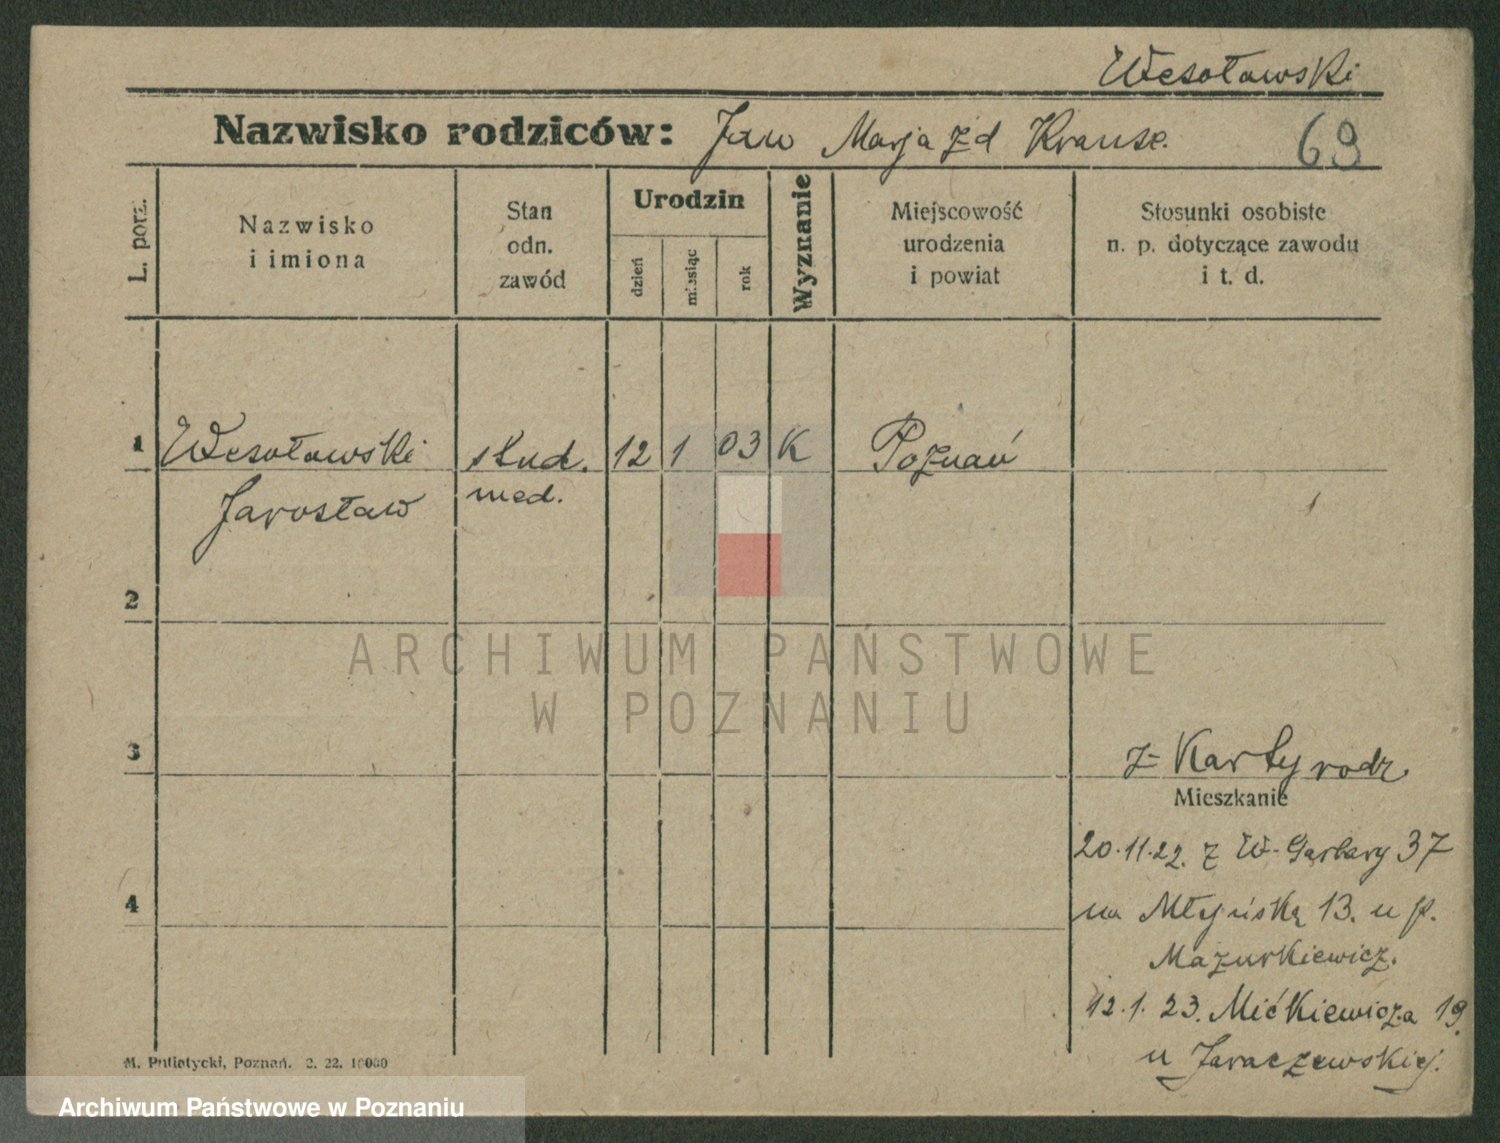 Wesołowski
Nazwisko rodziców: Jan Marja zd Krause.
69
L. porz.
Nazwisko
i imiona
Stan
odn.
zawód
Urodzin
dzień
miesiąc
rok
Wyznanie
Miejscowość
urodzenia
i powiat
Stosunki osobiste
n. p. dotyczące zawodu
i t. d.
1 Wesołowski stud. 12 1 03 K Poznań
Jarosław med.
2
ARCHIWUM PAŃSTWOWE
W POZNANIU
3
z Karty rodz.
Mieszkanie
20.11.22. z W. Garbary 37
4
na Młyńską 13. u p.
Mazurkiewicz.
12.1.23. Mićkiewicza 19.
u Jaraczewskiej.
M. Putiatycki, Poznań. 2. 22. 10000
Archiwum Państwowe w Poznaniu